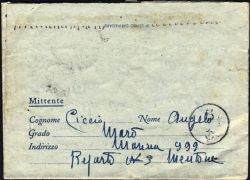 Mittente
Cognome Ciccio Nome Angelo
Grado Marò
Indirizzo Marina 999
Reparto N 3 Mentone